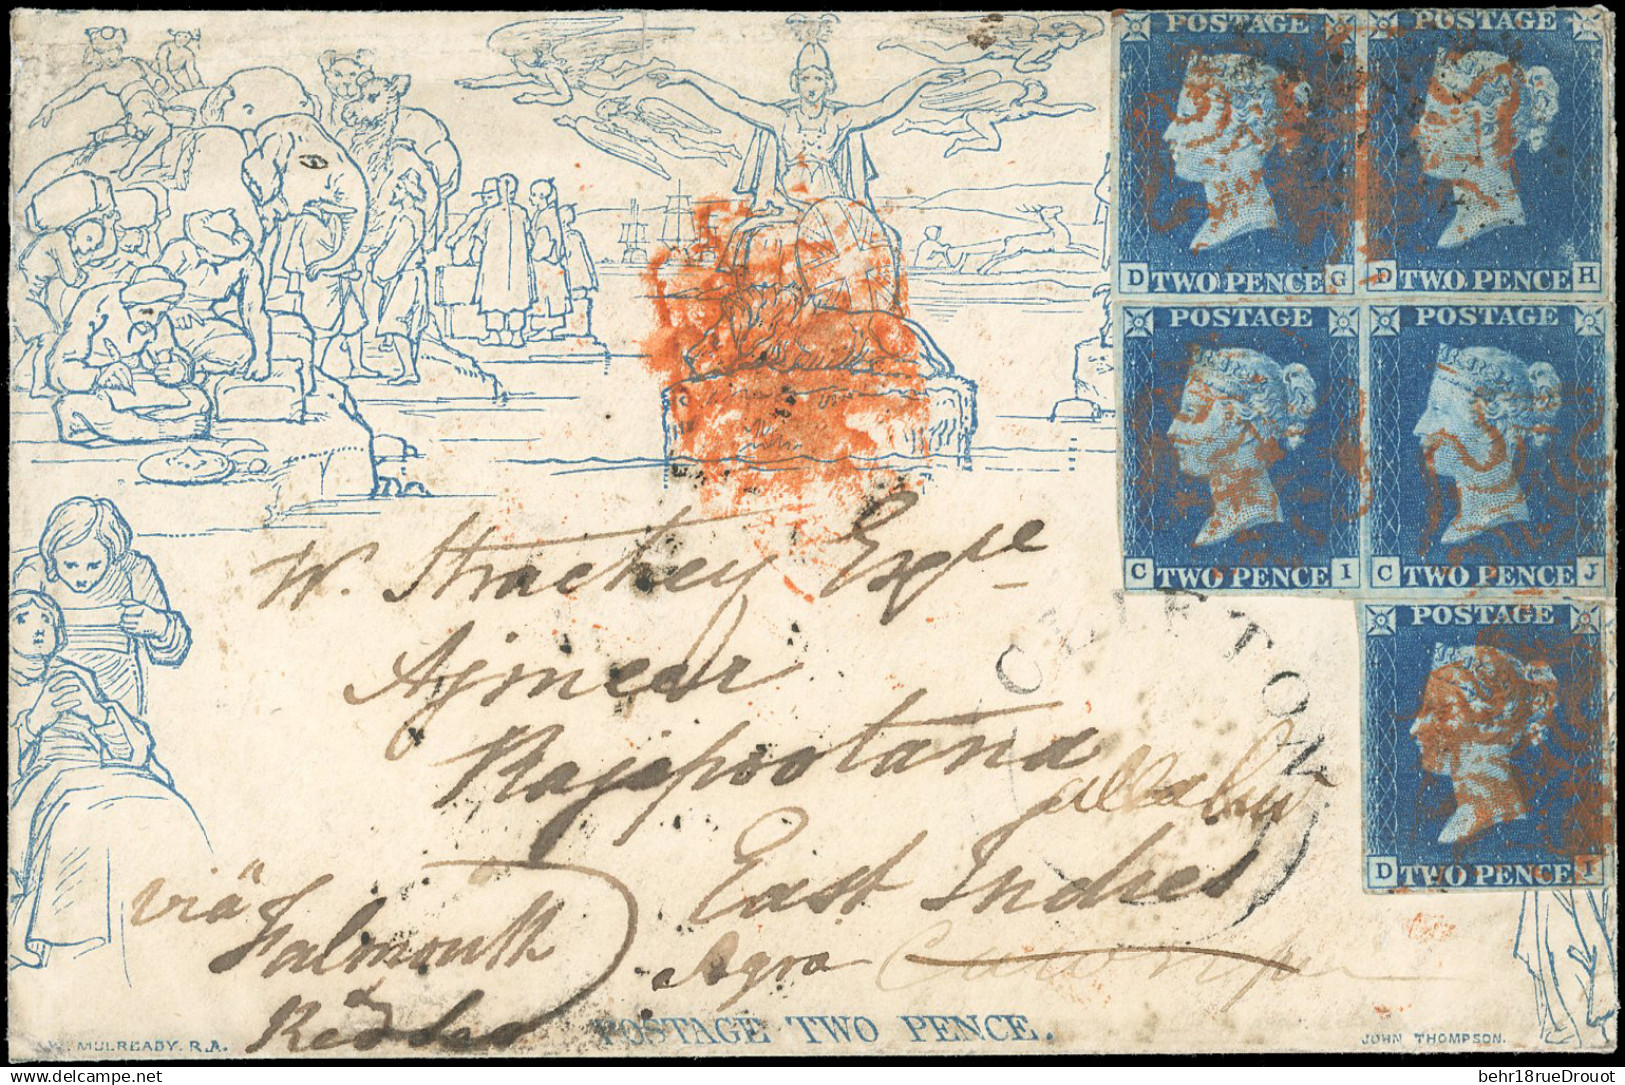 POSTAGE POSTAGE
D TWO PENCE G D TWO PENCE H
POSTAGE POSTAGE
C TWO PENCE I C TWO PENCE J
POSTAGE
D TWO PENCE I
CLIFTON
W. Strachey Esqre
Ajmear
Rajpootana
East Indies
Agra
via
Falmouth
POSTAGE TWO PENCE.
W. MULREADY. R.A.
JOHN THOMPSON.
delcampe.net
behr18rueDrouot